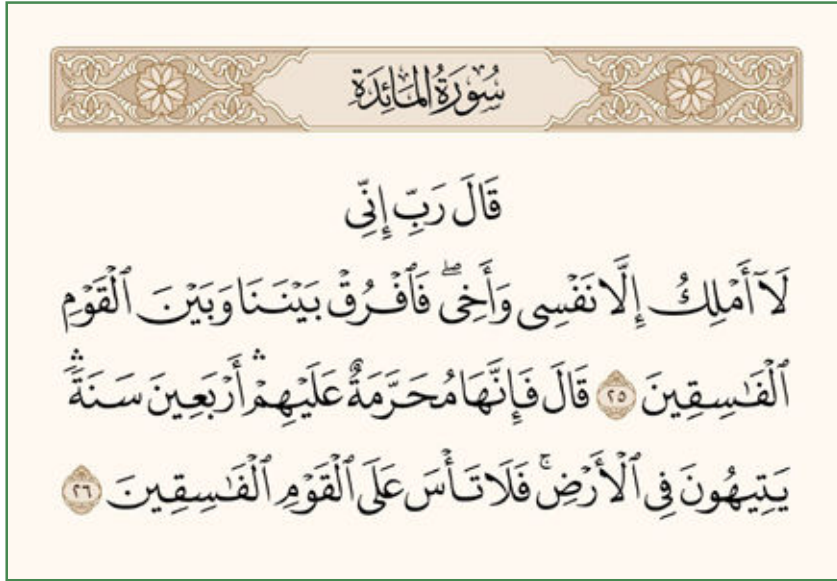 سُورَةُ المَائِدَةِ
قَالَ رَبِّ إِنِّى
لَآ أَمْلِكُ إِلَّا نَفْسِى وَأَخِى ۖ فَٱفْرُقْ بَيْنَنَا وَبَيْنَ ٱلْقَوْمِ
ٱلْفَـٰسِقِينَ ٢٥ قَالَ فَإِنَّهَا مُحَرَّمَةٌ عَلَيْهِمْ ۛ أَرْبَعِينَ سَنَةً ۛ
يَتِيهُونَ فِى ٱلْأَرْضِ ۚ فَلَا تَأْسَ عَلَى ٱلْقَوْمِ ٱلْفَـٰسِقِينَ ٢٦